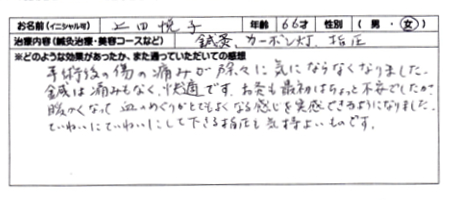 お名前(イニシャル可) 上田悦子 年齢 66才 性別 (男・女)
治療内容(鍼灸治療・美容コースなど) 鍼灸、カーボン灯、指圧
※どのような効果があったか、また通っていただいての感想
手術後の傷の痛みが徐々に気にならなくなりました。
鍼は痛みもなく、快適です。お灸も最初はちょっと不安でしたが、
暖かくなって血のめぐりがとてもよくなる感じを実感できるようになりました。
ていねいにていねいにして下さる指圧も気持よいものです。